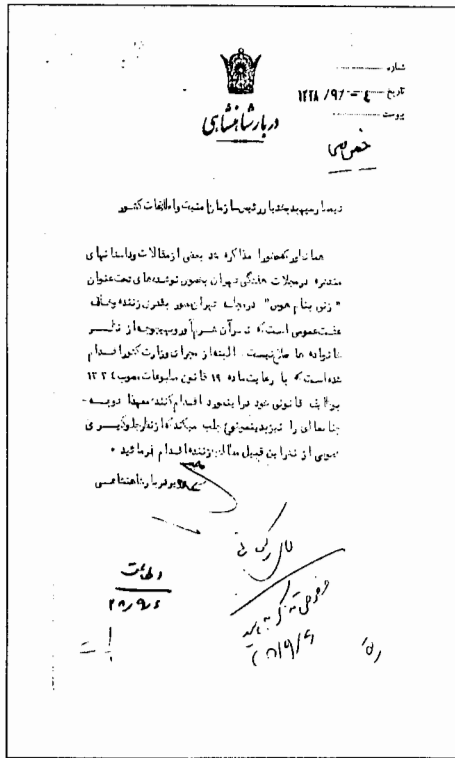 شماره
تاریخ ۴ - /۹/ ۱۳۳۸
پیوست
دربار شاهنشاهی
خصوصی
تیمسار سپهبد بختیار رئیس سازمان امنیت و اطلاعات کشور
همانطور که حضورا مذاکره شد بعضی از مقالات و داستانهای
منتشره در مجلات هفتگی تهران بخصوص نوشته‌های تحت عنوان
"زنی بنام هوس" در مجله تهران مصور بقدری زننده و مخالف
عفت عمومی است که نشر آن شرم‌آور و بهیچوجه از نظر
خانواده ها صلاح نیست . البته از مجرای وزارت کشور اقدام
شده است که با رعایت ماده ۱۹ قانون مطبوعات مصوب ۱۳۳۴
بوظایف قانونی خود در اینمورد اقدام کنند معهذا توجه
جنابعالی را نیز بدینموضوع جلب میکند که از نظر جلوگیری
عمومی از نشر این قبیل مطالب زننده اقدام فرمائید .
وزیر دربار شاهنشاهی
۲۸/۹/۶